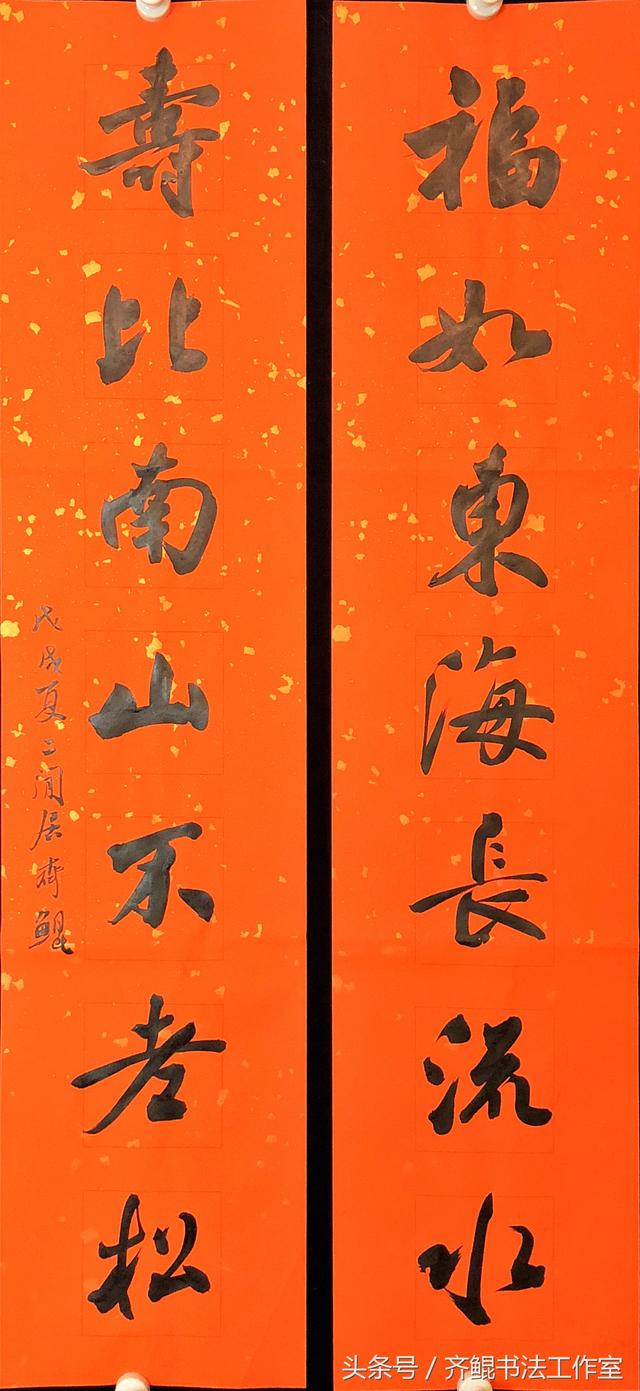 福如東海長流水
壽比南山不老松
戊戌夏二閒居齊鲲
头条号 / 齐鲲书法工作室